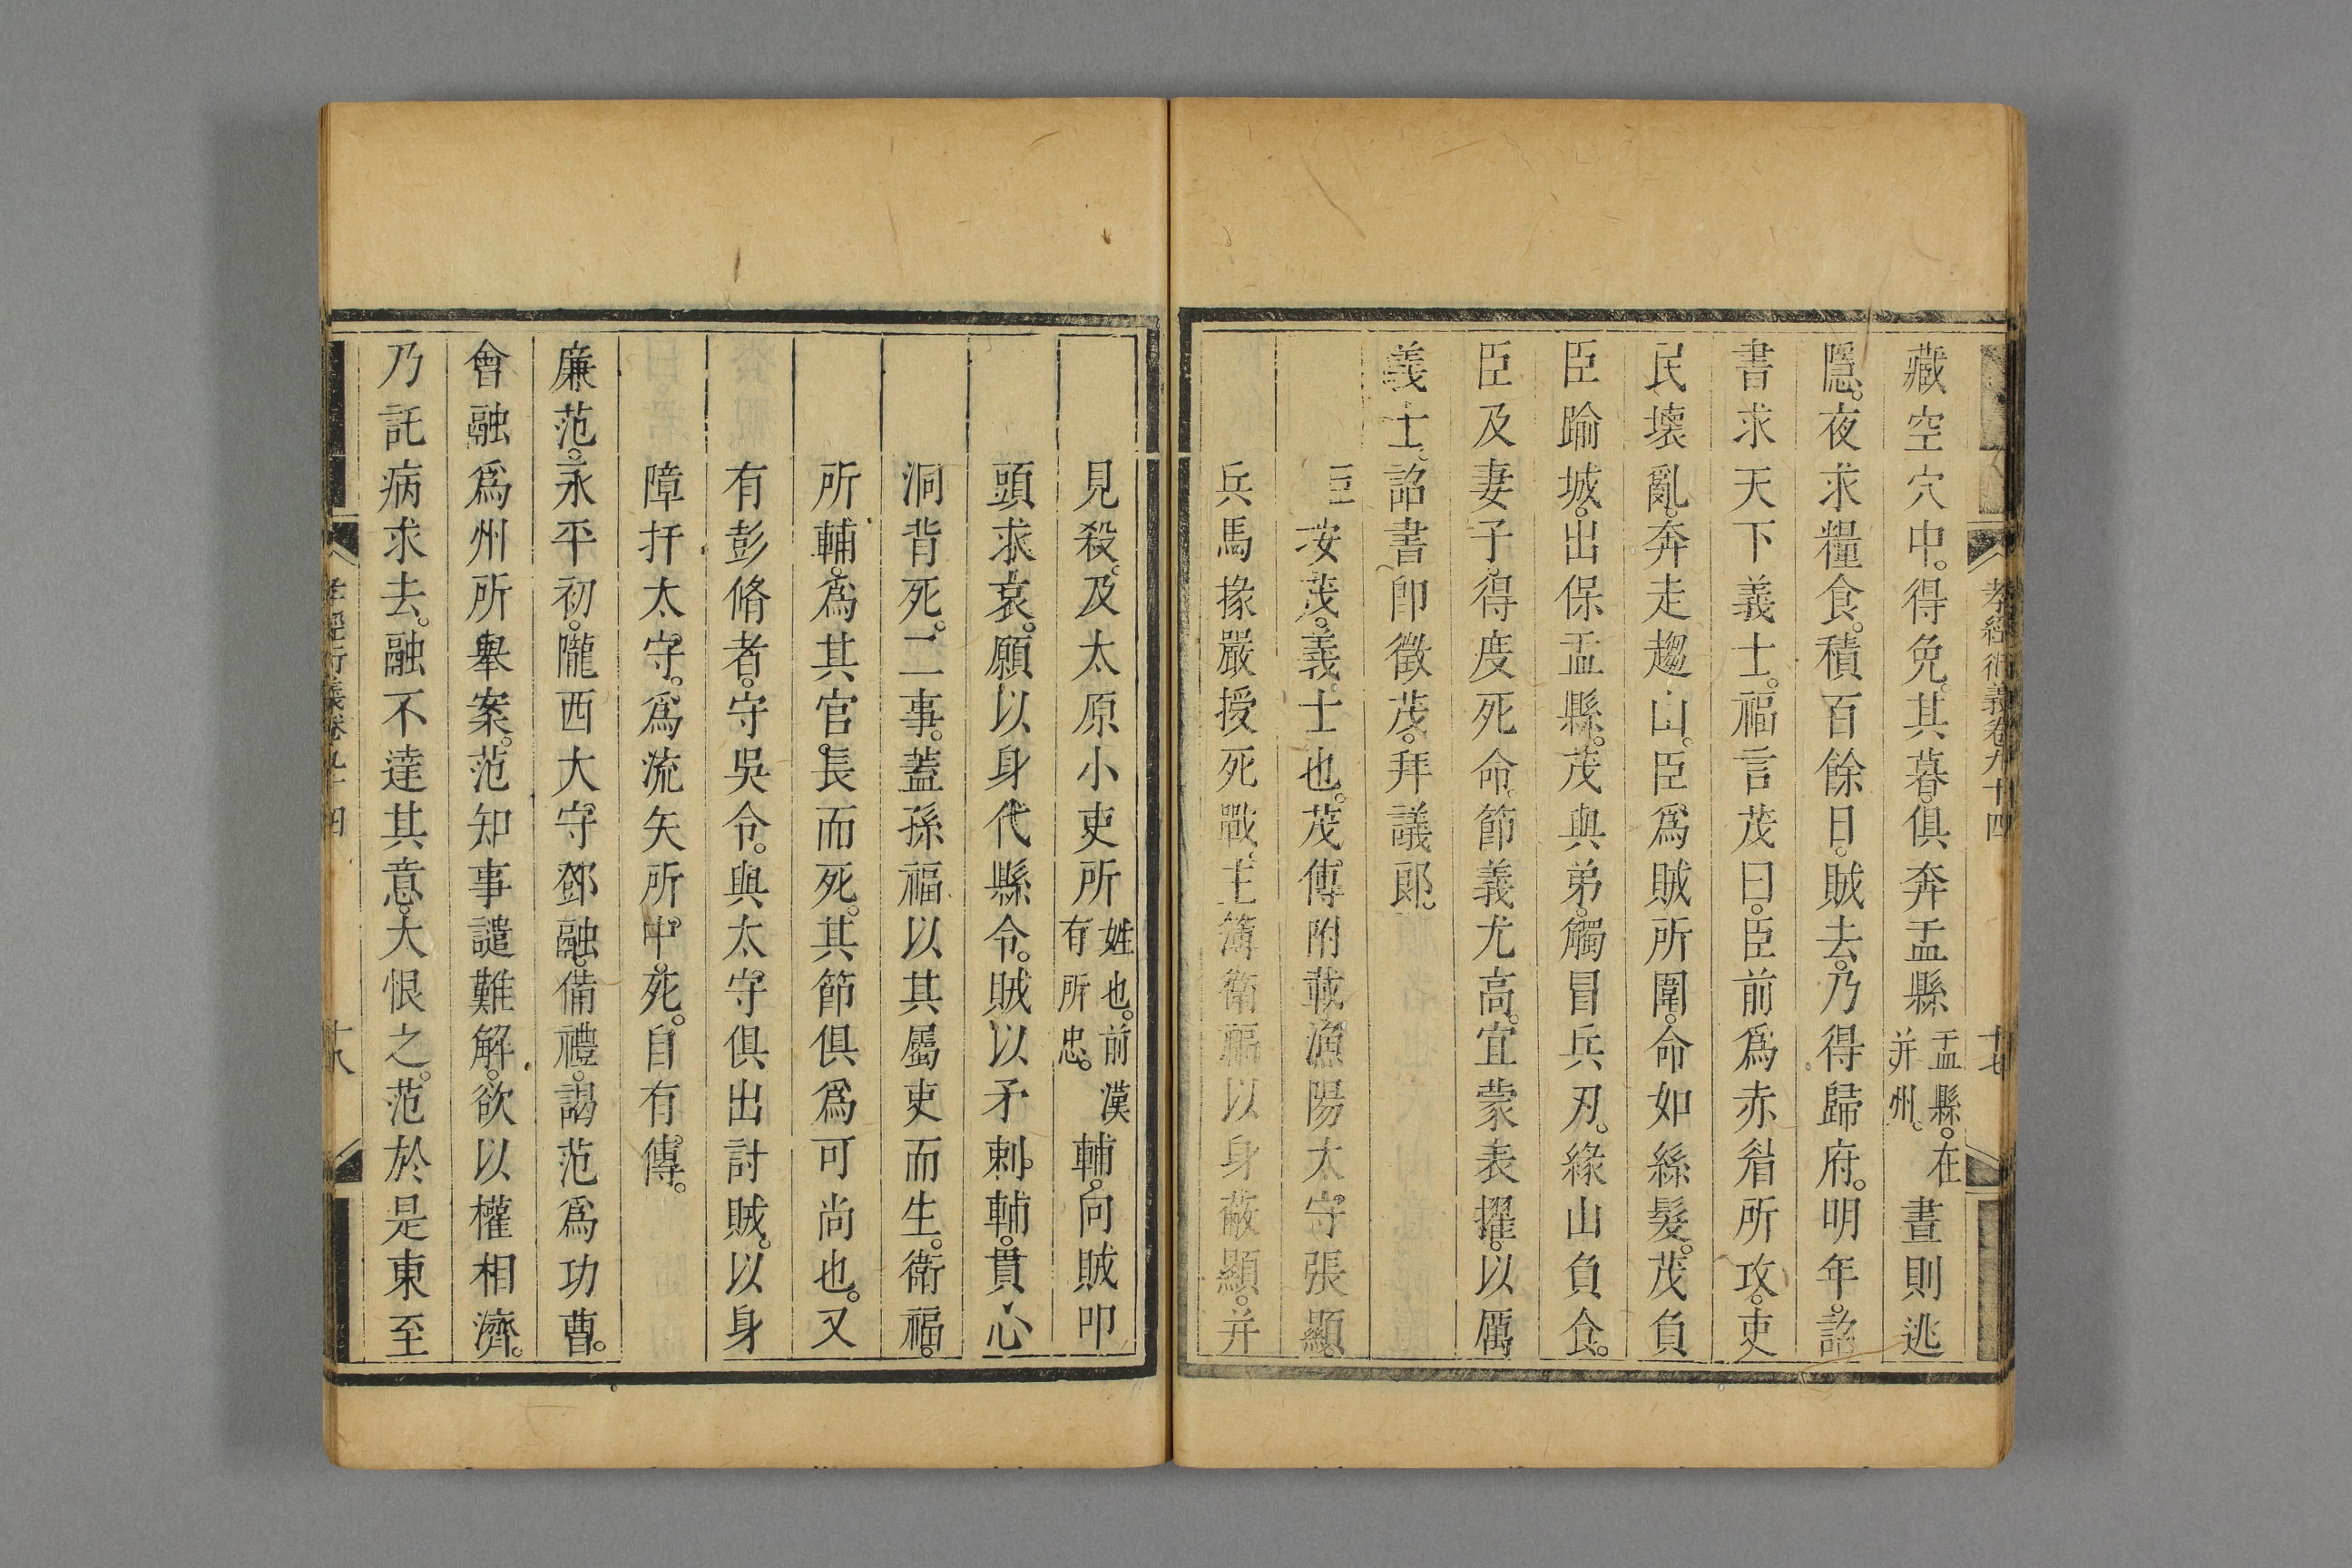 孝經衍義卷九十四
十七
藏空穴中。得免。其暮。俱奔盂縣盂縣。在并州。晝則逃
隱。夜求糧食。積百餘日。賊去。乃得歸府。明年。詔
書求天下義士。福言茂曰。臣前爲赤眉所攻。吏
民壞亂。奔走趨山。臣爲賊所圍。命如絲髮。茂負
臣踰城。出保盂縣。茂與弟。觸冒兵刃。緣山負食。
臣及妻子。得度死命。節義尤高。宜蒙表擢。以厲
義士。詔書即徵茂。拜議郎。
臣按茂。義士也。茂傳附載漁陽太守張顯。
兵馬掾嚴授死戰。主簿衛福以身蔽顯。并
見殺。及太原小吏所姓也。前漢有所忠。輔。向賊叩
頭求哀。願以身代縣令。賊以矛刺。輔。貫心
洞背死。二事。蓋孫福以其屬吏而生。衛福。
所輔。爲其官長而死。其節俱爲可尚也。又
有彭脩者。守吳令。與太守俱出討賊。以身
障扞太守。爲流矢所中。死。自有傳。
廉范。永平初。隴西大守鄧融。備禮。謁范爲功曹。
會融爲州所舉案。范知事譴難解。欲以權相濟。
乃託病求去。融不達其意。大恨之。范於是東至
孝經衍義卷九十四
十八